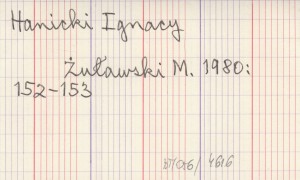 Hanicki Ignacy
Żuławski M. 1980:
152-153